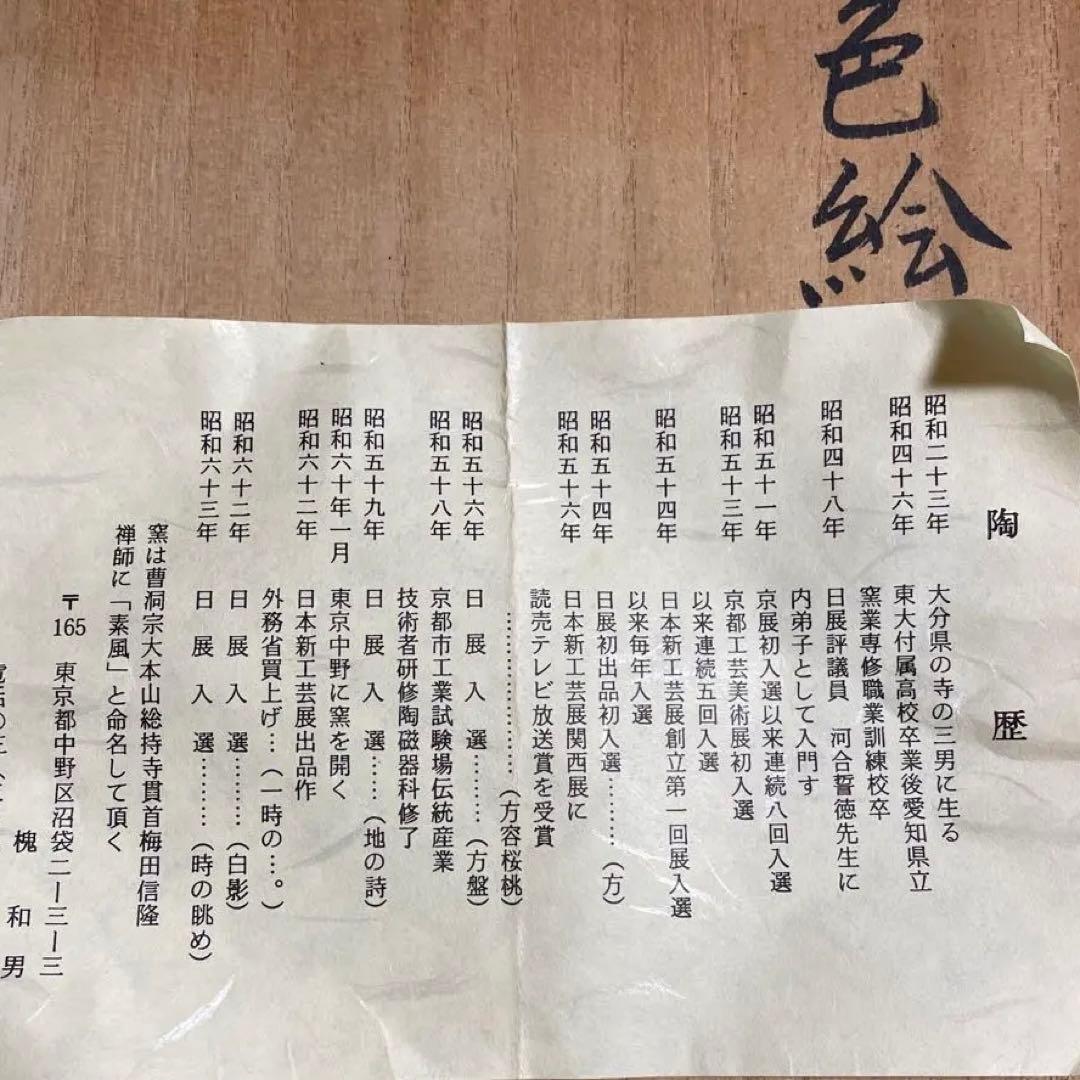 色絵
陶歴
昭和二十三年 大分県の寺の三男に生る
昭和四十六年 東大付属高校卒業後愛知県立
窯業専修職業訓練校卒
昭和四十八年 日展評議員 河合誓徳先生に
内弟子として入門す
昭和五十一年 京展初入選以来連続八回入選
昭和五十三年 京都工芸美術展初入選
以来連続五回入選
昭和五十四年 日本新工芸展創立第一回展入選
以来毎年入選
昭和五十四年 日展初出品初入選………(方)
昭和五十六年 日本新工芸展関西展に
読売テレビ放送賞を受賞
……………………(方容桜桃)
昭和五十六年 日展入選………(方盤)
昭和五十八年 京都市工業試験場伝統産業
技術者研修陶磁器科修了
昭和五十九年 日展入選……(地の詩)
昭和六十年一月 東京中野に窯を開く
昭和六十二年 日本新工芸展出品作
外務省買上げ…(一時の…。)
昭和六十二年 日展入選………(白影)
昭和六十三年 日展入選………(時の眺め)
窯は曹洞宗大本山総持寺貫首梅田信隆
禅師に「素風」と命名して頂く
〒165 東京都中野区沼袋二ー三ー三
槐和男